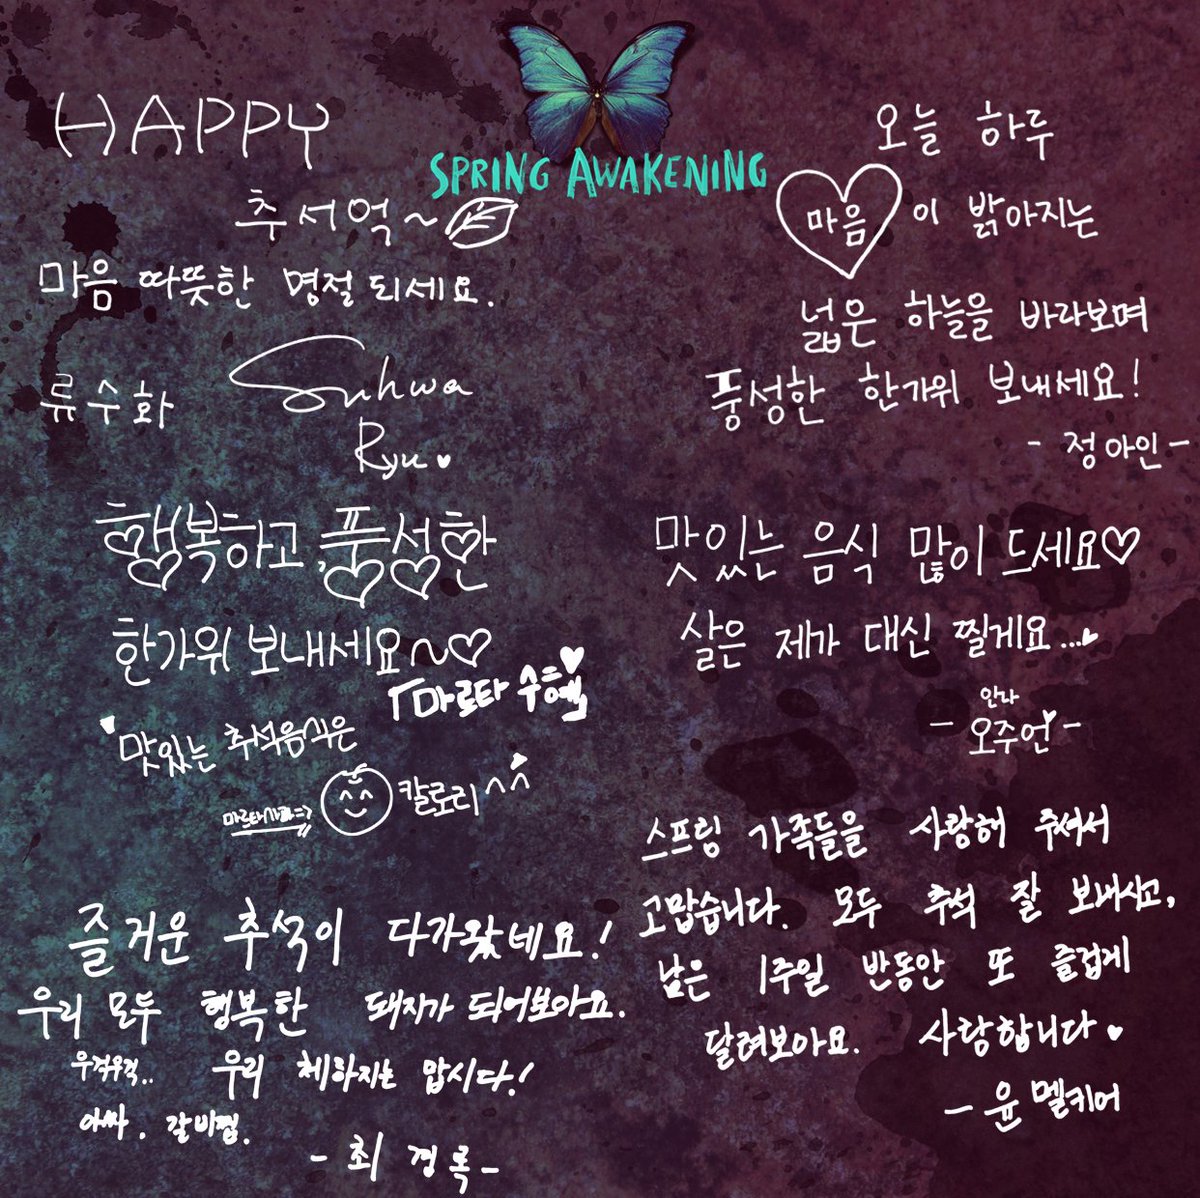 SPRING AWAKENING
HAPPY
추서억~
마음 따뜻한 명절 되세요.
류수화 Suhwa
Ryu
오늘 하루
마음이 밝아지는
넓은 하늘을 바라보며
풍성한 한가위 보내세요!
- 정아인 -
행복하고, 풍성한
한가위 보내세요~
「마르타 수혜」
맛있는 추석음식은
마르타사과=> 칼로리^^
맛있는 음식 많이 드세요
살은 제가 대신 찔게요...
안나
- 오주언 -
즐거운 추석이 다가왔네요!
우리 모두 행복한 돼지가 되어보아요.
우걱우걱.. 우리 체하지는 맙시다!
아싸. 갈비찜.
- 최경록 -
스프링 가족들을 사랑해 주셔서
고맙습니다. 모두 추석 잘 보내시고,
남은 1주일 반동안 또 즐겁게
달려보아요. 사랑합니다
- 윤멜키어